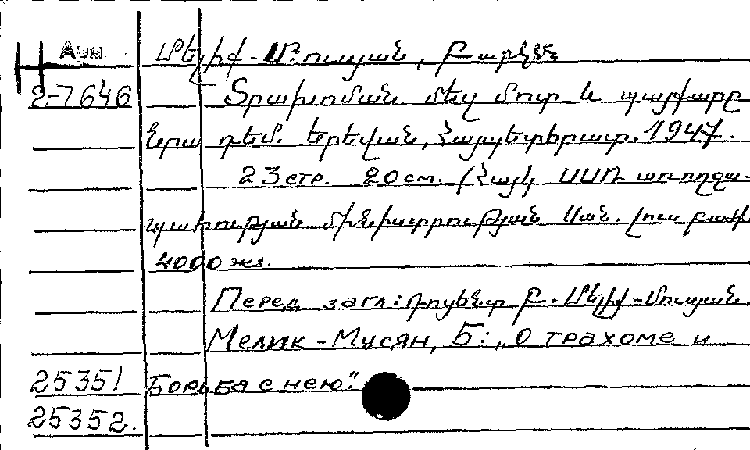 Арм. Մելիք-Մուսյան, Բարկեն
2-7646 Տրախոման մեզ մոտ և պայքարը
նրա դեմ. Երեվան, Հայպետհրատ. 1947.
23 стр. 20 см. (Հայկ ՍՍՌ առողջա-
պահության մինիստրության Սան. լուս բաժ.
4000 экз.
Перед загл.: Դոցենտ Բ. Մելիք-Մուսյան
Мелик-Мусян, Б.: „О трахоме и
25351 борьба с нею".
25352.